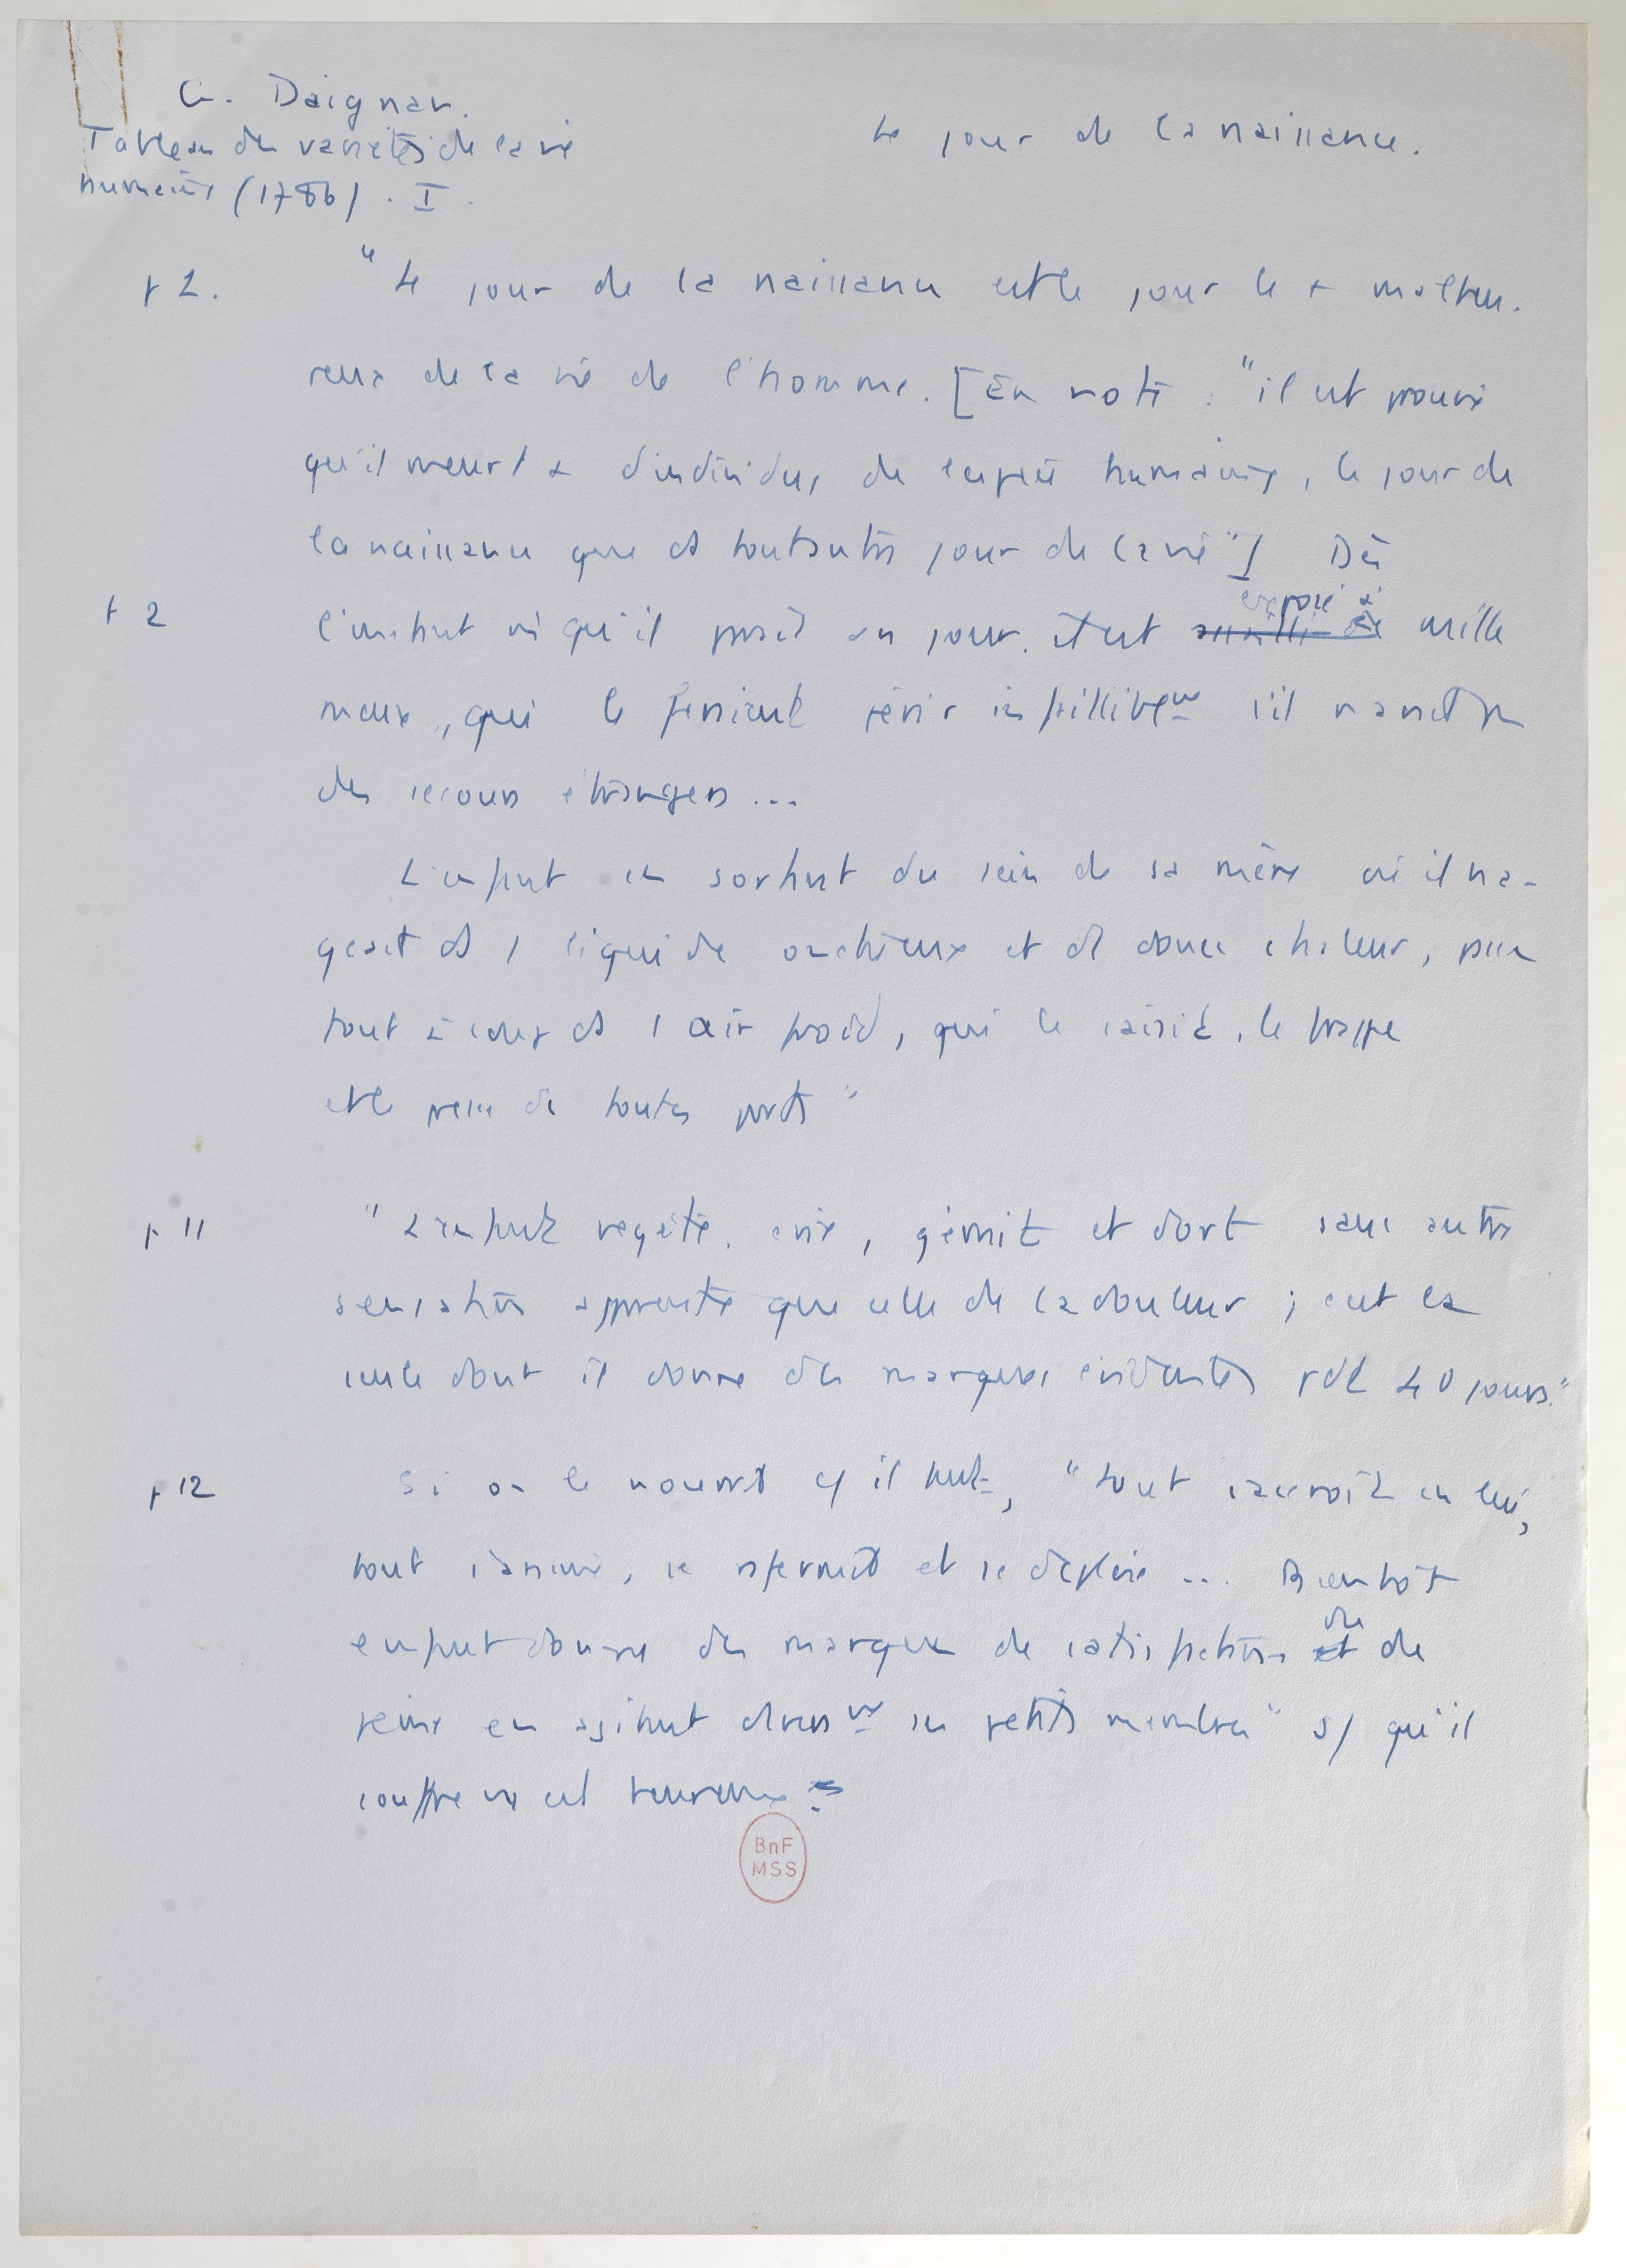 G. Daignan.
Tableau des variétés de la vie
humaine (1786). I.
Le jour de la naissance.
p 1.
"Le jour de la naissance est le jour le + malheu-
reux de la vie de l'homme. [En note : "il est prouvé
qu'il meurt + d'individus de l'espèce humaine, le jour de
la naissance que ds tout autre jour de la vie"] Dès
p 2
exposé à
l'instant où qu'il paraît au jour. il est assailli de mille
maux, qui le feraient périr infaillibt s'il n'avait pas
des secours étrangers ...
L'enfant en sortant du sein de sa mère où il na-
geait ds 1 liquide onctueux et ds douce chaleur, passe
tout à coup ds 1 air froid, qui le saisit, le frappe
et le presse de toutes parts"
p 11
"L'enfant végète, crie, gémit et dort sans autre
sensation apparente que celle de la douleur ; c'est la
seule dont il donne des marques évidentes pdt 40 jours."
p 12
Si on le nourrit il, "tout s'accroît en lui,
tout s'anime, se raffermit et se déploie ... Bientôt
enfant donne des marques de satisfaction et de
ou
peine en agitant ses petits membres" s/ qu'il
souffre ou est heureux
BnF
MSS